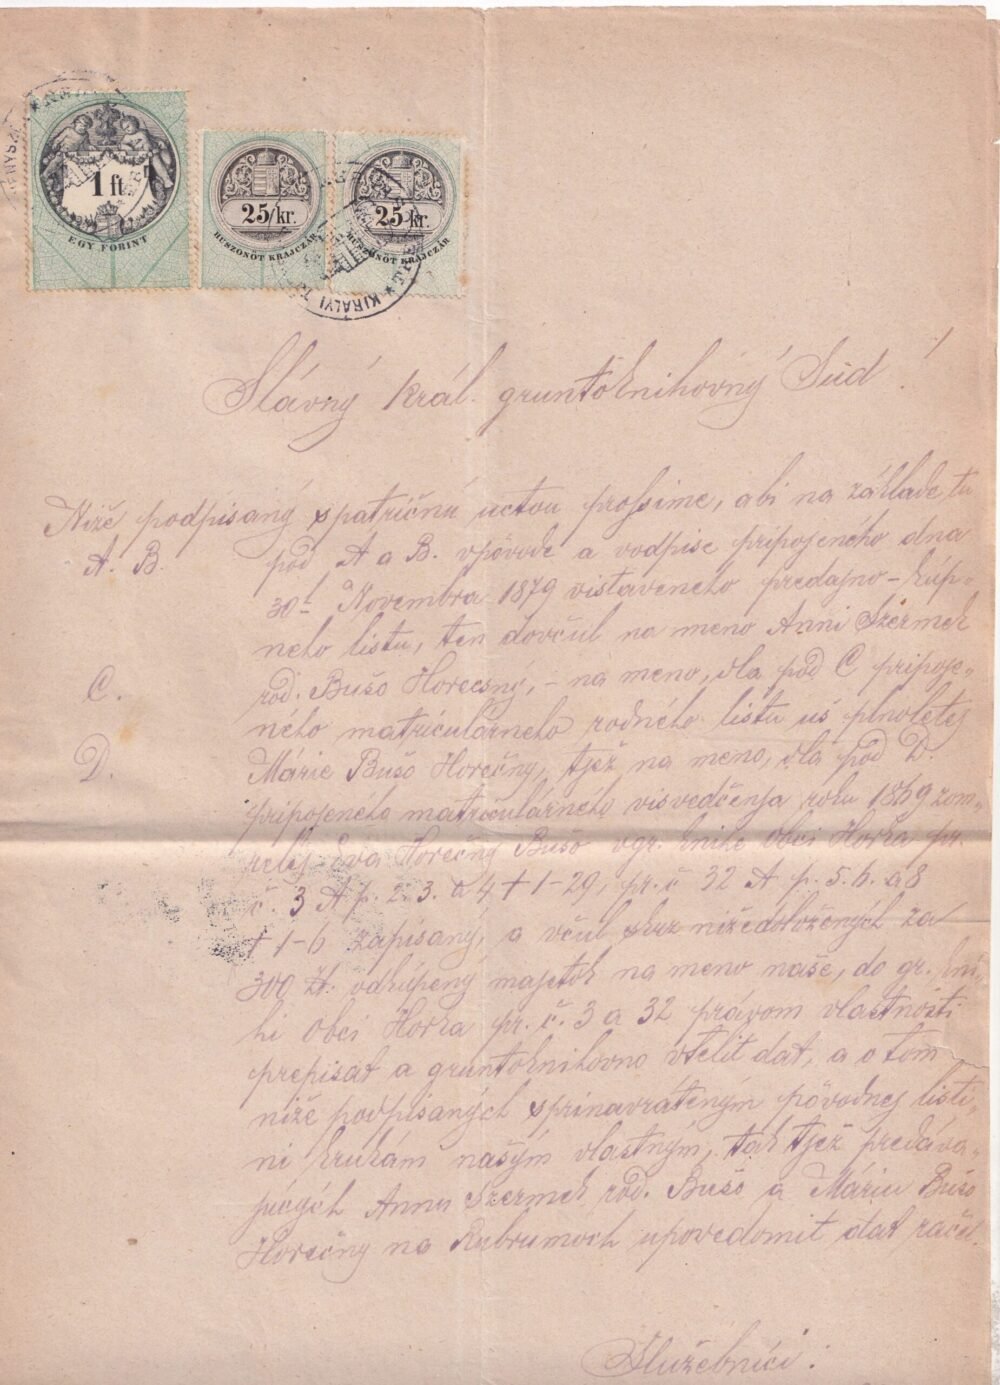 1 ft.
EGY FORINT
25 kr.
HUSZONÖT KRAJCZÁR
25 kr.
HUSZONÖT KRAJCZÁR
KIRÁLYI
Slávný král. gruntoknihovný Súd!
Niže podpisaný spatričnú uctou prossime, abi na základe tu
A. B. pod A a B. vpôvode a vodpise pripojeného dna
30t Novembra 1879 vistaveneho predajno-kúp-
neho listu, ten dovčul na meno Anni Szermek
rod. Bušo Horecsný, - na meno, dla pod C pripoje-
C.
ného matriculárneho rodného listu uš plnoletej
D. Márie Bušo Horečny, tjež na meno, dla pod D.
pripojeného matričulárného visvedčenja roku 1869 zom-
relej Eva Horečny Bušo vgr. knihe obci Horka pr.
č. 3 A p. 2. 3. a 4 † 1-29, pr. č 32 A p. 5. 6. a 8
† 1-6 zapisaný, a včul skrz nižedoložených za
300 zt. odkúpený majetok na meno naše, do gr. kni-
hi obci Horka pr. č. 3 a 32 právom vlastnosti
prepisat a gruntoknihovno vtelit dat, a o tom
niže podpisaných sprinavráteným pôvodnej listi-
ni krukám našým vlastným, tak tjež predáva-
júcých Annu Szermek rod. Bušo a Máriu Bušo
Horečny na Rubrumoch upovedomit dat ráčil.
Služebníci: